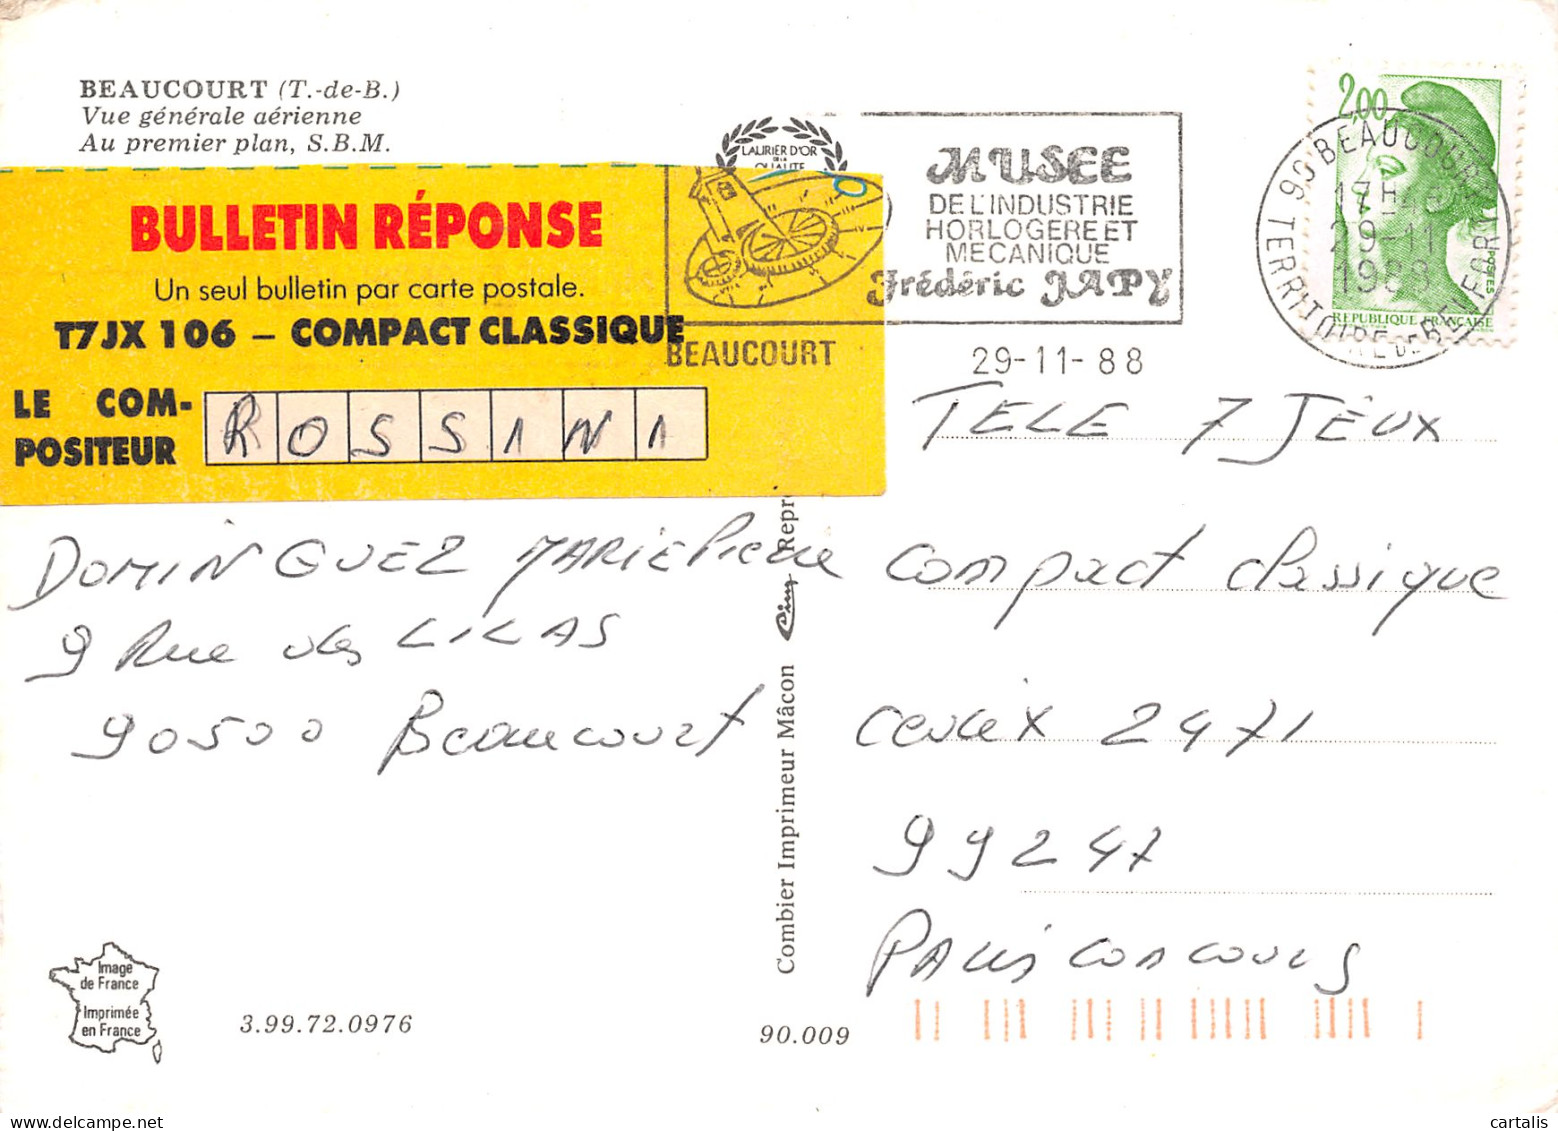 BEAUCOURT (T.-de-B.)
Vue générale aérienne
Au premier plan, S.B.M.
BULLETIN RÉPONSE
Un seul bulletin par carte postale.
T7JX 106 – COMPACT CLASSIQUE
LE COM-
POSITEUR
ROSSINI
LAURIER D'OR
DE LA
QUALITE
MUSEE
DE L'INDUSTRIE
HORLOGERE ET
MECANIQUE
Frédéric JAPY
BEAUCOURT
29-11-88
90 BEAUCOURT
17H
29-11
1988
TERRITOIRE DE BELFORT
2,00
POSTES
REPUBLIQUE FRANÇAISE
TELE 7 JEUX
Compact classique
cedex 2471
99247
PARIS CONCOURS
DOMINGUEZ MARIE Pierre
9 Rue des LILAS
90500 Beaucourt
Combier Imprimeur Mâcon Cim Repr
Image
de France
Imprimée
en France
3.99.72.0976
90.009
cartalis